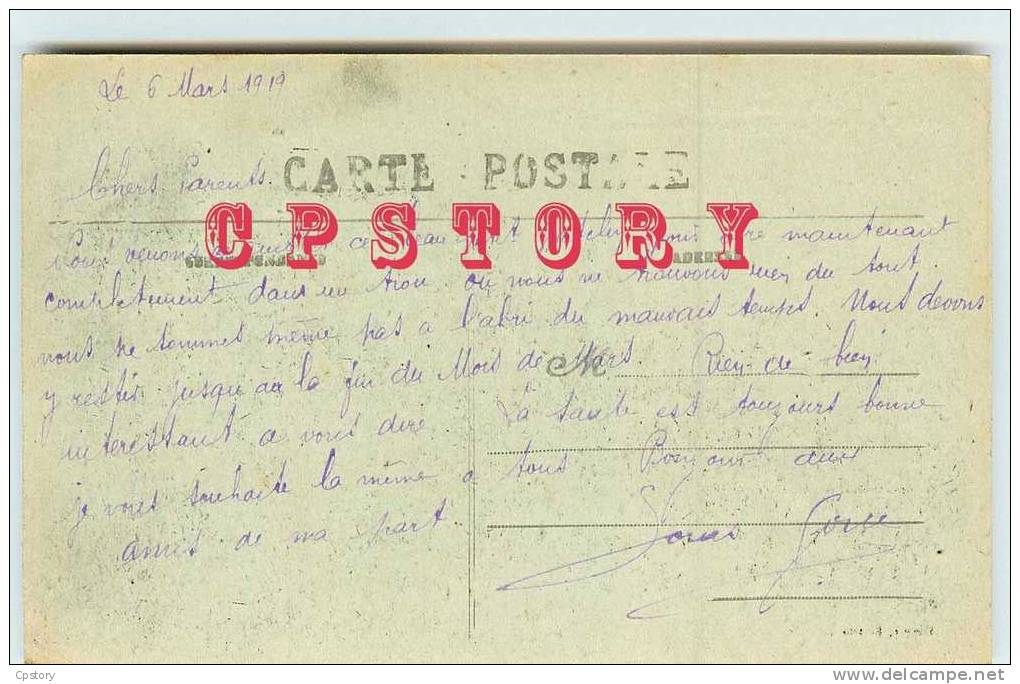 Le 6 Mars 1919
Chers Parents.
CARTE POSTALE
CPSTORY
Nous venons de maintenant
complètement dans un trou où nous ne trouvons rien du tout.
nous ne sommes même pas à l'abri du mauvais temps. Nous devons
y rester jusqu'au la fin du Mois de Mars Rien de bien
M
interessant a vous dire La santé est toujours bonne
je vous souhaite la même a tous Bonjour aux
amis de ma part
Louis
Cpstory
www.delcampe.net